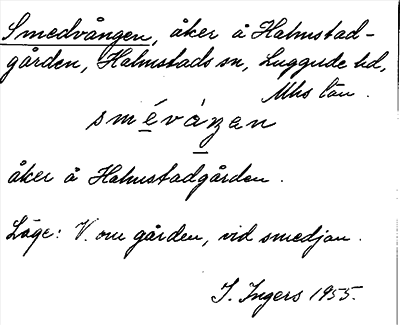 Smedvången, åker å Halmstad-
gården, Halmstads sn, Luggude hd,
Mhs län.
smévàŋen
åker å Halmstadgården.
Läge: V. om gården, vid smedjan.
I. Ingers 1955.